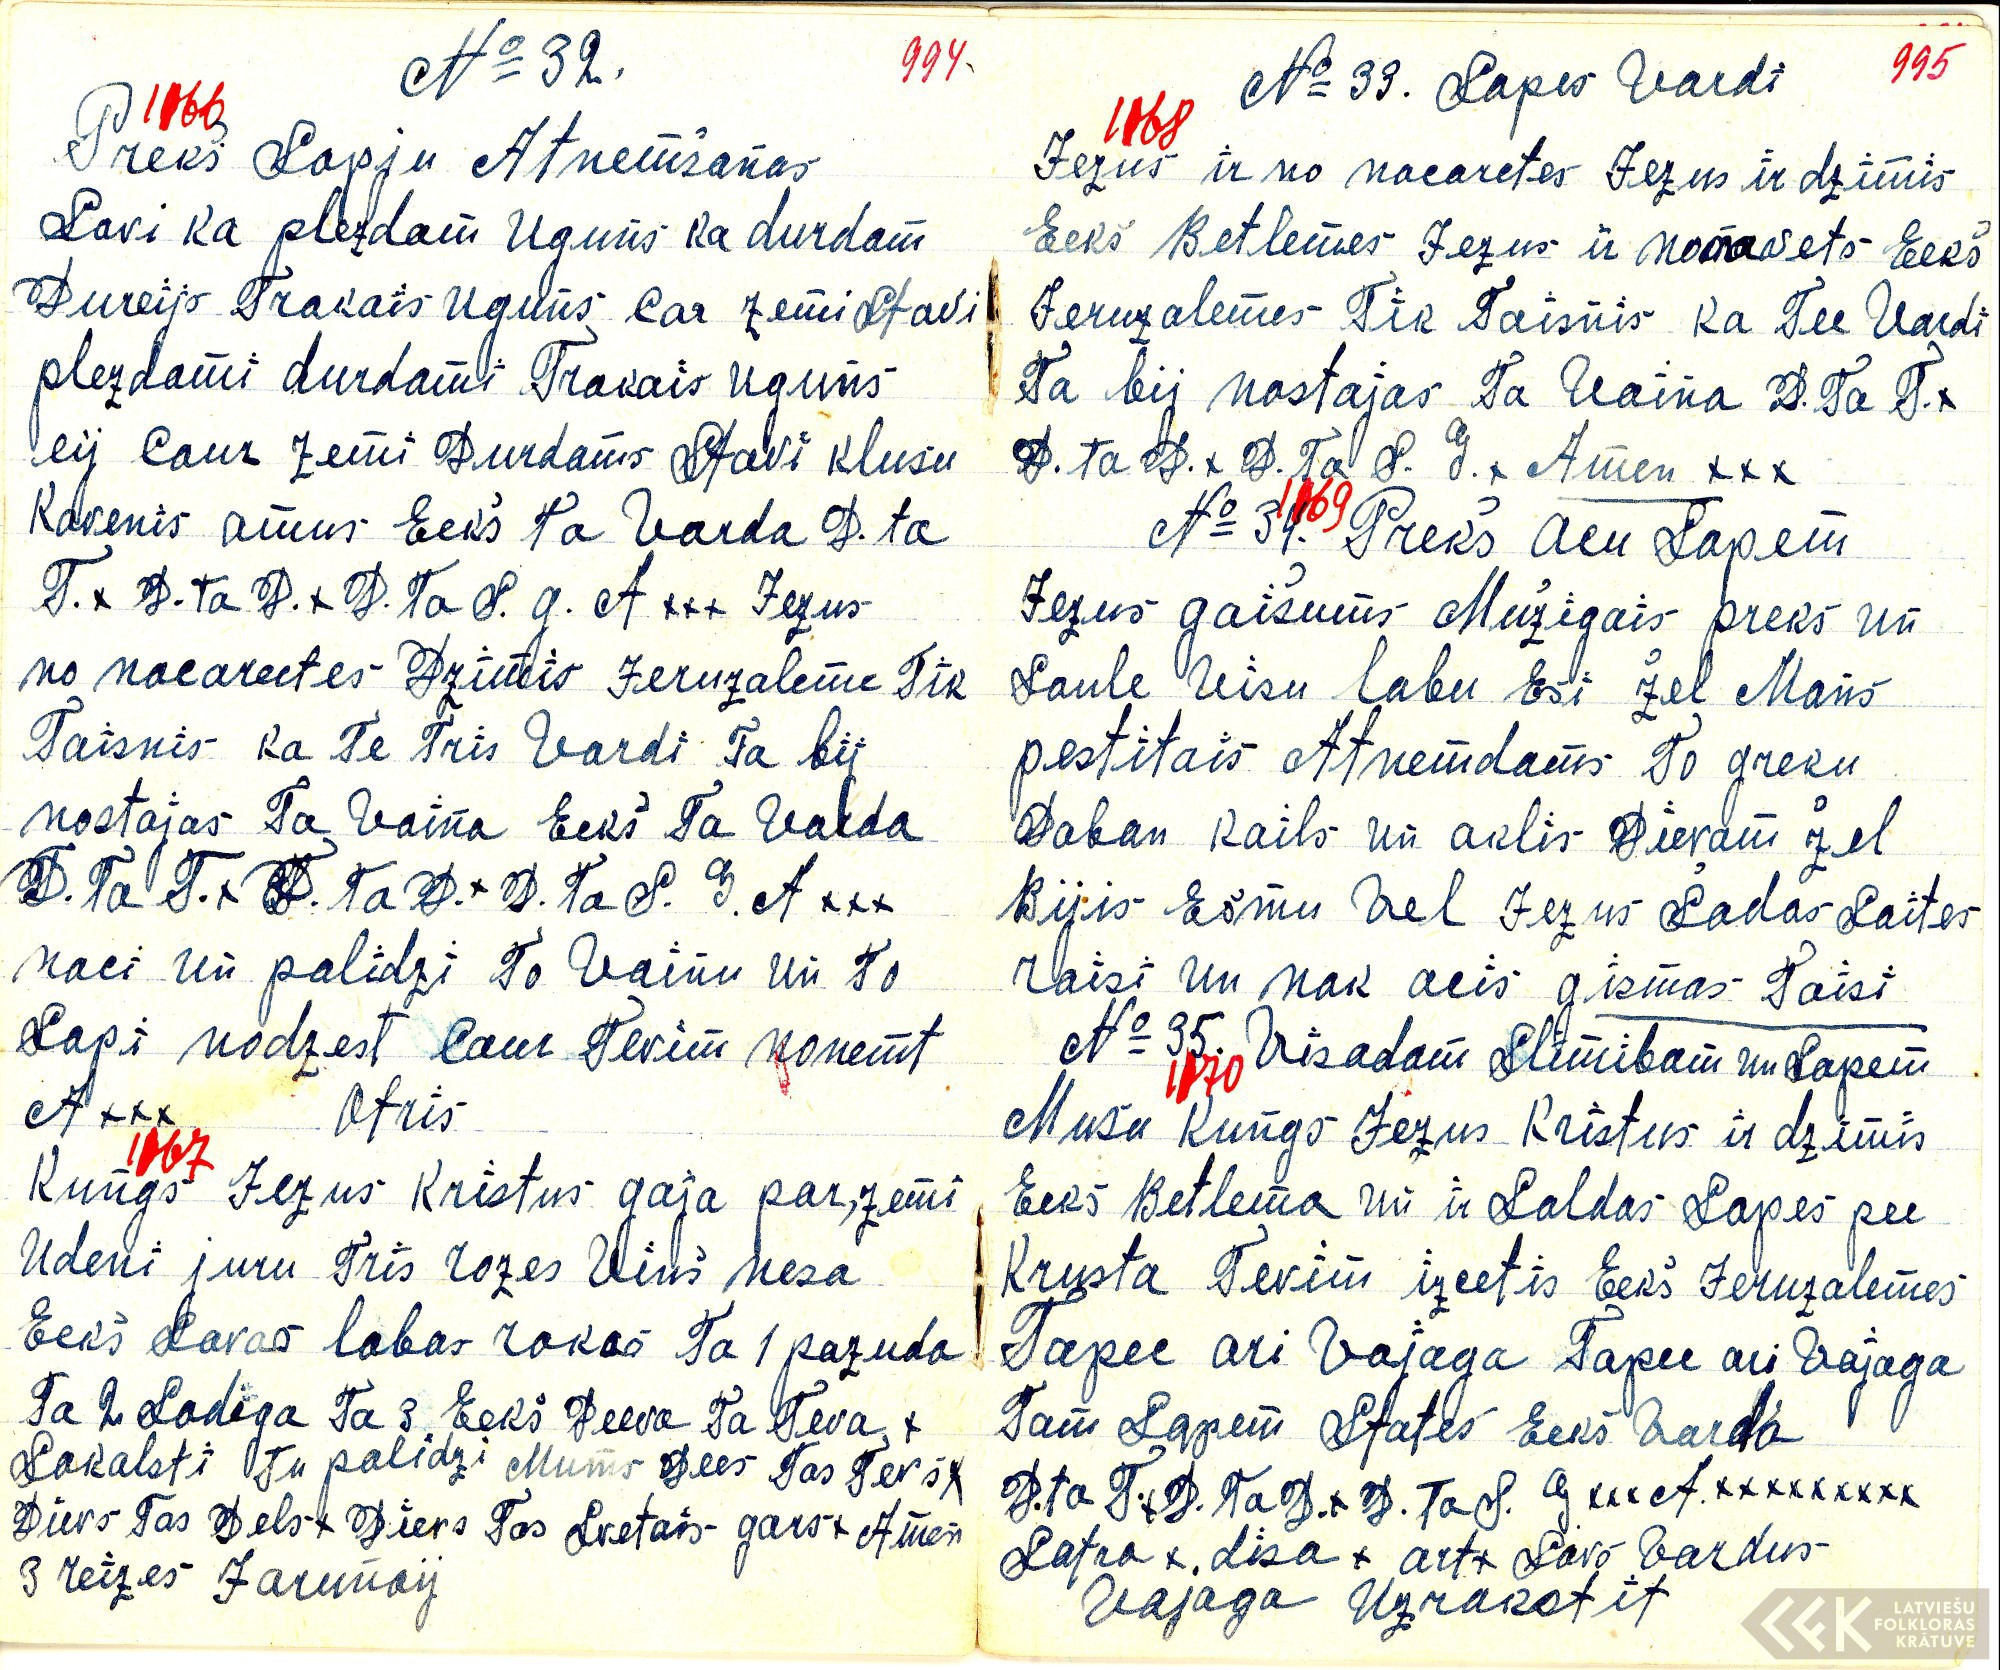 № 32.
994.
1866
Preks Sapju Atnemšanas
Savi ka plezdam Uguns ka durdam
Dureijs Trakais Uguns Car zemi Stavi
plezdami durdami Trakais Uguns
eij Caur zemi Durdams Stavi klusu
Kavenis amus Eekš Ta Varda D. ta
T. x D. ta D. x D. Ta S. g. A xxx Jezus
no nacareetes Dzimis Jeruzaleme Tik
Taisnis ka Te Tris Vardi Ta bij
nostajas Ta Vaina Eekš Ta Varda
D. Ta T. x D. Ta D. x D. Ta S. G. A xxx
naci un palidzi To Vainu un To
Sapi nodzest Caur Tevim nonemt
A xxx Otris
1867
Kungs Jezus Kristus gaja par, zemi
Udeni juru Tris rozes Vinš nesa
Eekš Savas labas rokas Ta 1 pazuda
Ta 2 Sadega Ta 3 Eekš Deeva Ta Teva x
Sakalsti Tu palidzi Mums Dees Tas Tevs x
Dievs Tas Dels x Dievs Tas Svetais gars x Amen
3 reizes Jarunaij
№ 33. Sapes Vardi
995
1868
Jezus ir no nacaretes Jezus ir dzimis
Eekš Betlemes Jezus ir nonavets Eekš
Jeruzalemes Tik Taisnis ka Tee Vardi
Ta bij nostajas Ta Vaina D. Ta T. x
D. ta D. x D. Ta S. G. x Amen xxx
1869
№ 34. Preks Acu Sapem
Jezus gaišums Mužigais preks un
Saule Visu labu Esi žel Mans
pestitais Atnemdams To greku
Daban kails un aklis Dievam žel
Bijis Esmu Vel Jezus Šadas Saites
raisi un nak acis gismas Taisi
№ 35. Visadam Slimibam un Sapem
1870
Musu Kungs Jezus Kristus ir dzimis
Eekš Betlema un ir Saldas Sapes pee
Krusta Tevim izcetis Eekš Jeruzalemes
Tapee ari Vajaga Tapee ari Vajaga
Tam Sapem States Eekš Varda
D. ta T. x D. Ta D. x D. Ta S. G xxx A. xxxxxxxxx
Satra x. disa x art x Savs Vardus
Vajaga Uzrakstit
LATVIEŠU
FOLKLORAS
KRĀTUVE